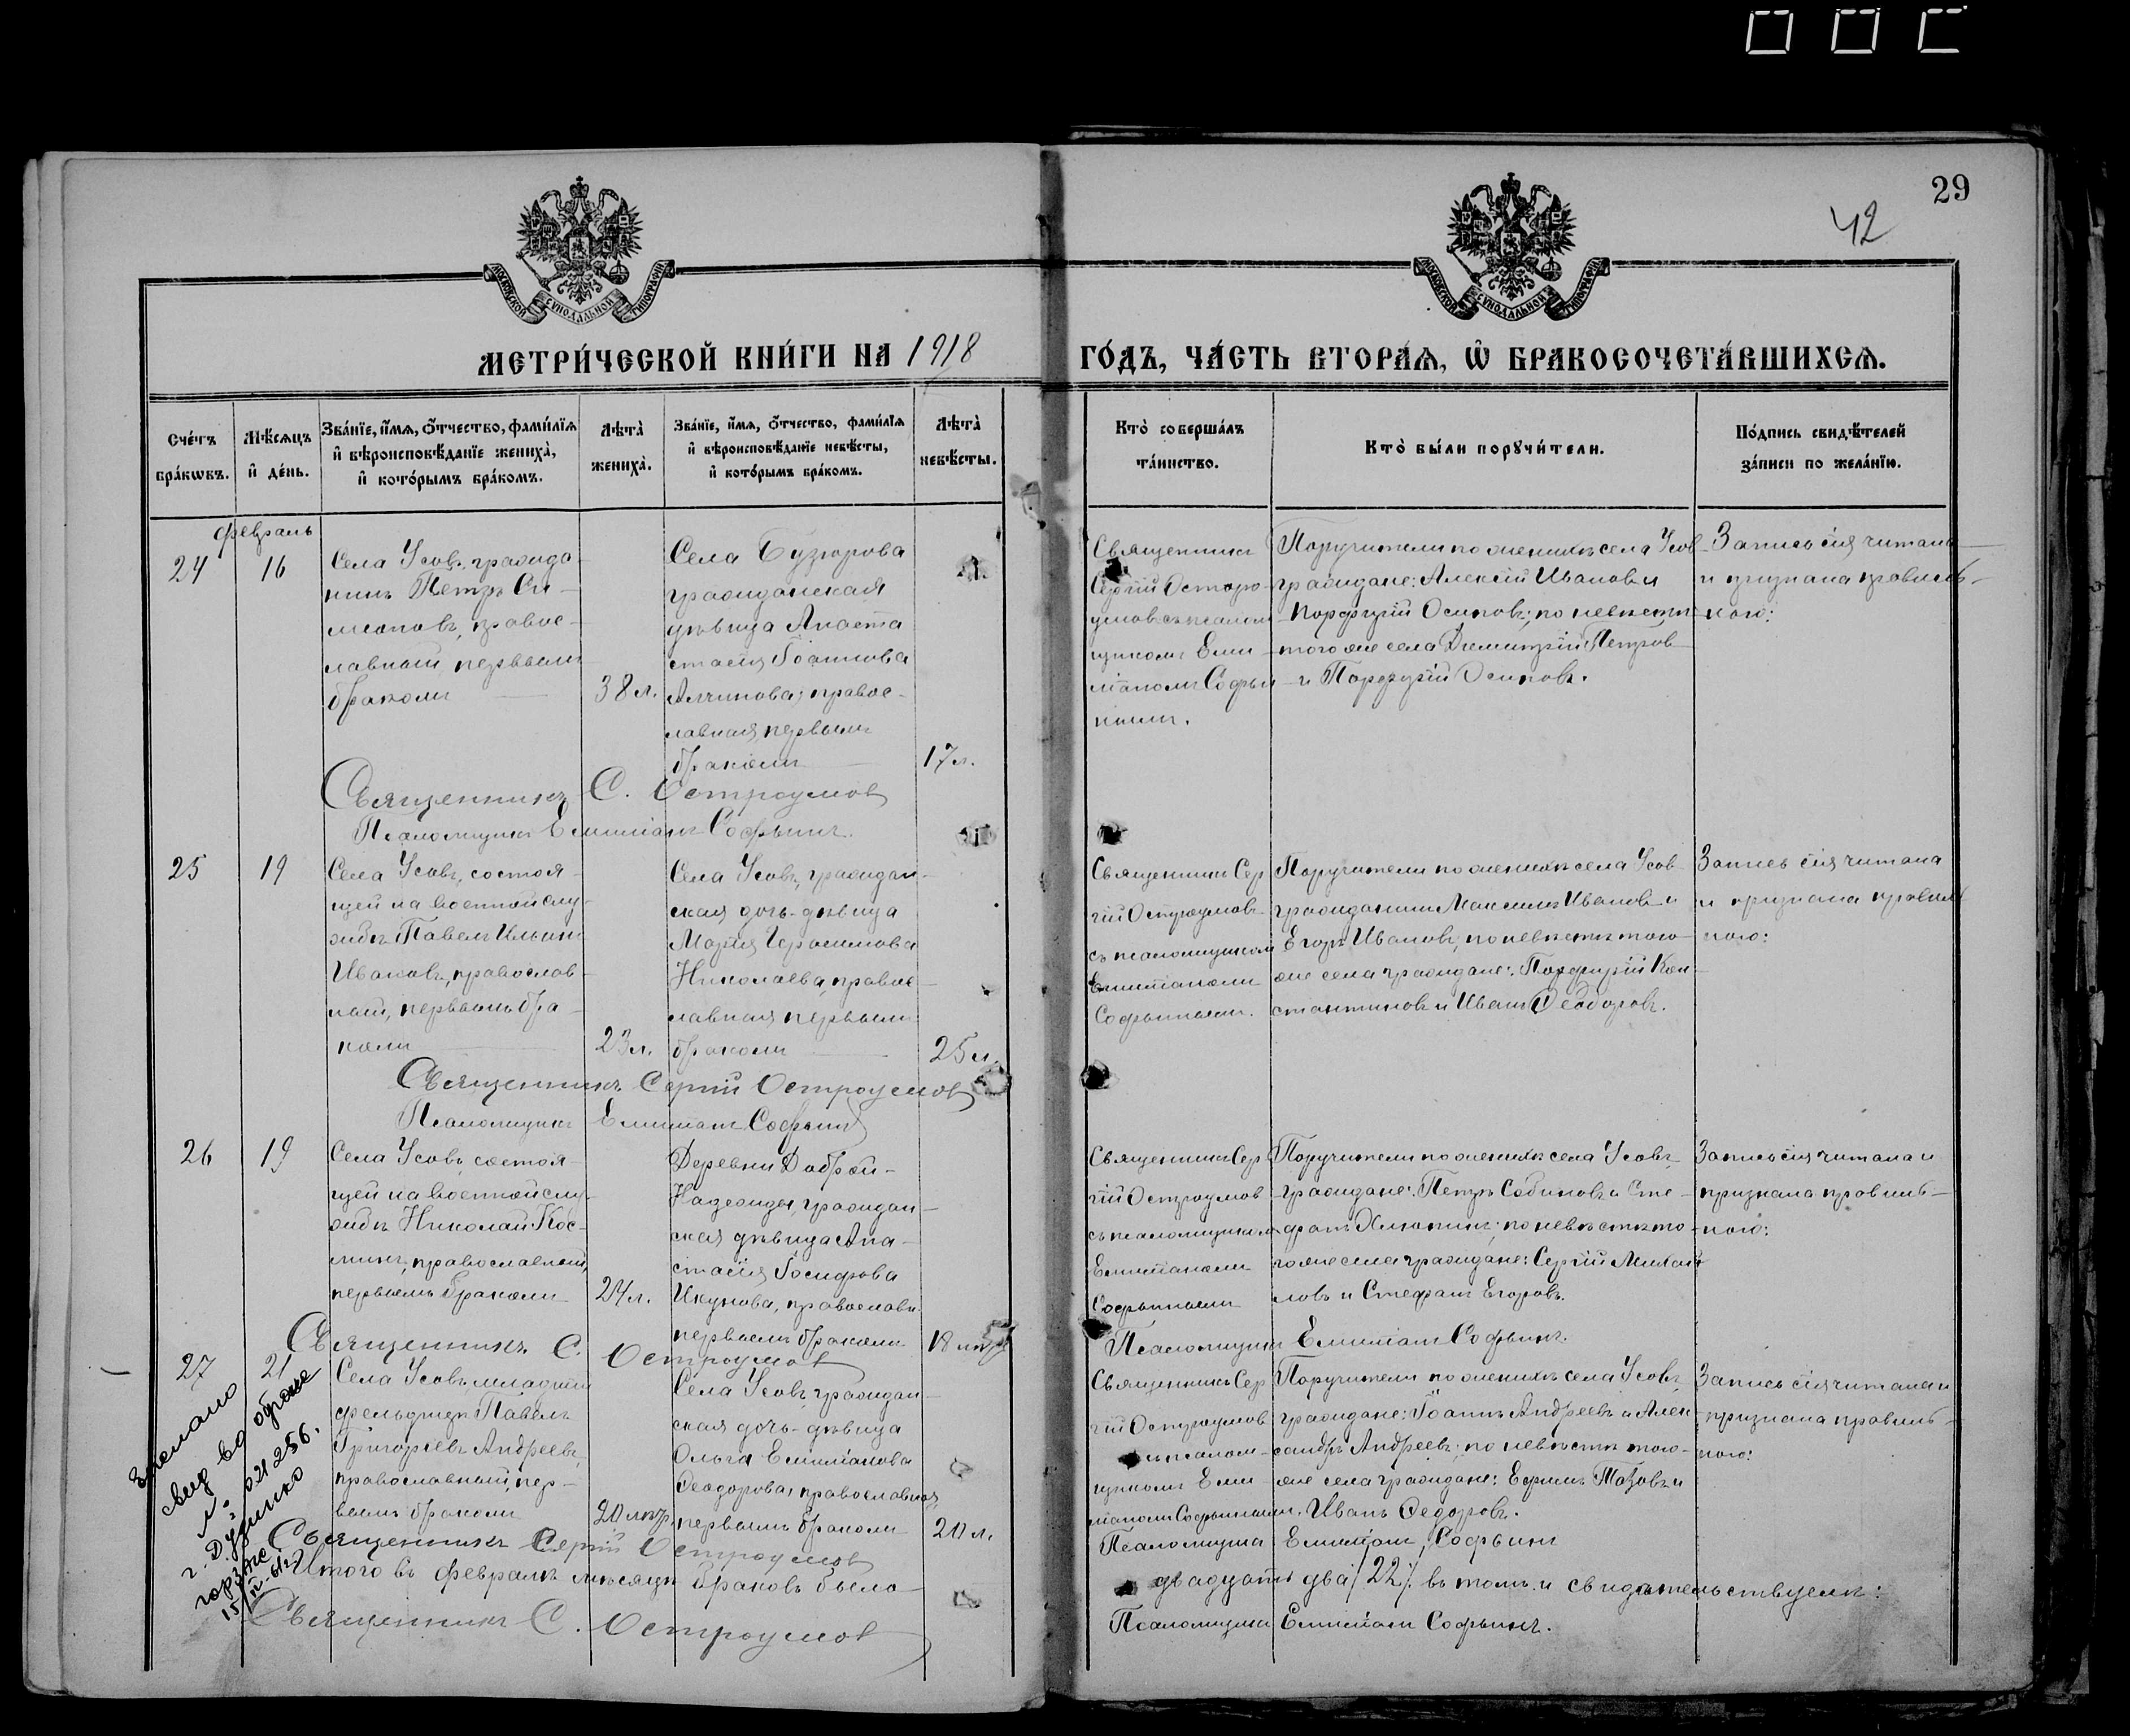 29
42
МОСКОВСКОЙ СѴНОДАЛЬНОЙ ТИПОГРАФІИ
МОСКОВСКОЙ СѴНОДАЛЬНОЙ ТИПОГРАФІИ
МЕТРИ́ЧЕСКОЙ КНИ́ГИ НА 1918
ГО́ДЪ, ЧА́СТЬ ВТОРА́Я, Ѡ҆ БРАКОСОЧЕТА́ВШИХСЯ.
Сче́тъ
бра́кѡвъ.
Мѣ́сяцъ
и҆ де́нь.
Зва́нїе, и҆́мя, ѻ҆́тчество, фами́лїя
и҆ вѣроисповѣ́данїе жениха̀,
и҆ кото́рымъ бра́комъ.
Лѣта̀
жениха̀.
Зва́нїе, и҆́мя, ѻ҆́тчество, фами́лїя
и҆ вѣроисповѣ́данїе невѣ́сты,
и҆ кото́рымъ бра́комъ.
Лѣта̀
невѣ́сты.
Кто̀ соверша́лъ
та́инство.
Кто̀ бы́ли порꙋчи́тели.
По́дпись свидѣ́телей
за́писи по жела́нїю.
февраль
24
16
Села Усовъ, гражда
нинъ Петръ Си-
меоновъ, правос-
лавный, первымъ
бракомъ
38 л.
Села Бузюрова
гражданская
дѣвица Анаста
стасія Іоаннова
правос-
лавная, первымъ
бракомъ
17 л.
Священникъ
Сергій Остро-
умовъ съ псалом
щикомъ Еми
ліаномъ Софьи
нымъ.
Поручители по женихѣ села Усов
граждане: Алексій Ивановъ и
Порфирій Осиповъ; по невѣстѣ
того же села Димитрій Петров
и Порфирій Осиповъ.
Запись сія читана
и признана правиль-
ною:
Священникъ С. Остроумовъ
Псаломщикъ Емиліанъ Софьинъ.
25
19
Села Усовъ, состоя-
щей на военной слу-
жбѣ Павелъ Ильинъ
Ивановъ, православ-
ный, первымъ бра-
комъ
23 л.
Села Усовъ, граждан-
ская дочь-дѣвица
Марія Герасимова
Николаева, правос-
лавная первымъ
бракомъ
25 л.
Священникъ Сер
гій Остроумовъ
съ псаломщикомъ
Емиліаномъ
Софьинымъ.
Поручители по женихѣ села Усов
гражданинъ Максимъ Ивановъ и
Егоръ Ивановъ, по невѣстѣ того
же села граждане: Порфирій Кон-
стантиновъ и Иванъ Ѳеодоровъ.
Запись сія читана
и признана правиль
ною:
Священникъ Сергій Остроумовъ
Псаломщикъ Емиліанъ Софьинъ
26
19
Села Усовъ, состоя-
щей на военной слу-
жбѣ Николай Кос-
минъ, православный,
первымъ бракомъ
24 л.
Деревни Доброй-
Надежды, граждан-
ская дѣвица Ана-
стасія Іосифова
Икунова, православн.
первымъ бракомъ
18 лѣтъ
Священникъ Сер
гій Остроумов
съ псаломщикомъ
Емиліаномъ
Софьинымъ
Поручители по женихѣ села Усовъ,
граждане: Петръ Сабиновъ и Сте-
фанъ Хлюпинъ; по невѣстѣ то-
го же села граждане: Сергій Михай
ловъ и Стефанъ Егоровъ.
Запись сія читана и
признана правиль-
ною:
Священникъ С. Остроумовъ
Псаломщикъ Емиліанъ Софьинъ.
27
21
Села Усовъ младшій
фельдшеръ Павелъ
Григорьевъ Андреевъ,
православный, пер-
вымъ бракомъ
20 лѣтъ
Села Усовъ, граждан-
ская дочь-дѣвица
Ольга Емиліанова
Ѳеодорова, православная,
первымъ бракомъ
20 л.
Священникъ Сер
гій Остроумов
съ псалом-
щикомъ Еми-
ліаномъ Софьинымъ.
Поручители по женихѣ села Усовъ,
граждане: Іоаннъ Андреевъ и Алек-
сандръ Андреевъ; по невѣстѣ того-
же села граждане: Ефимъ Тазовъ и
Иванъ Ѳедоровъ.
Запись сія читана и
признана правиль-
ною:
свид во
№ 021256.
15/IV-61 г.
Священникъ Сергій Остроумовъ
Псаломщикъ Емиліанъ Софьинъ
Итого въ февралѣ мѣсяцѣ браковъ было
двадцать два /22/. въ томъ и свидѣтельствуемъ:
Священникъ С. Остроумовъ
Псаломщикъ Емиліанъ Софьинъ.